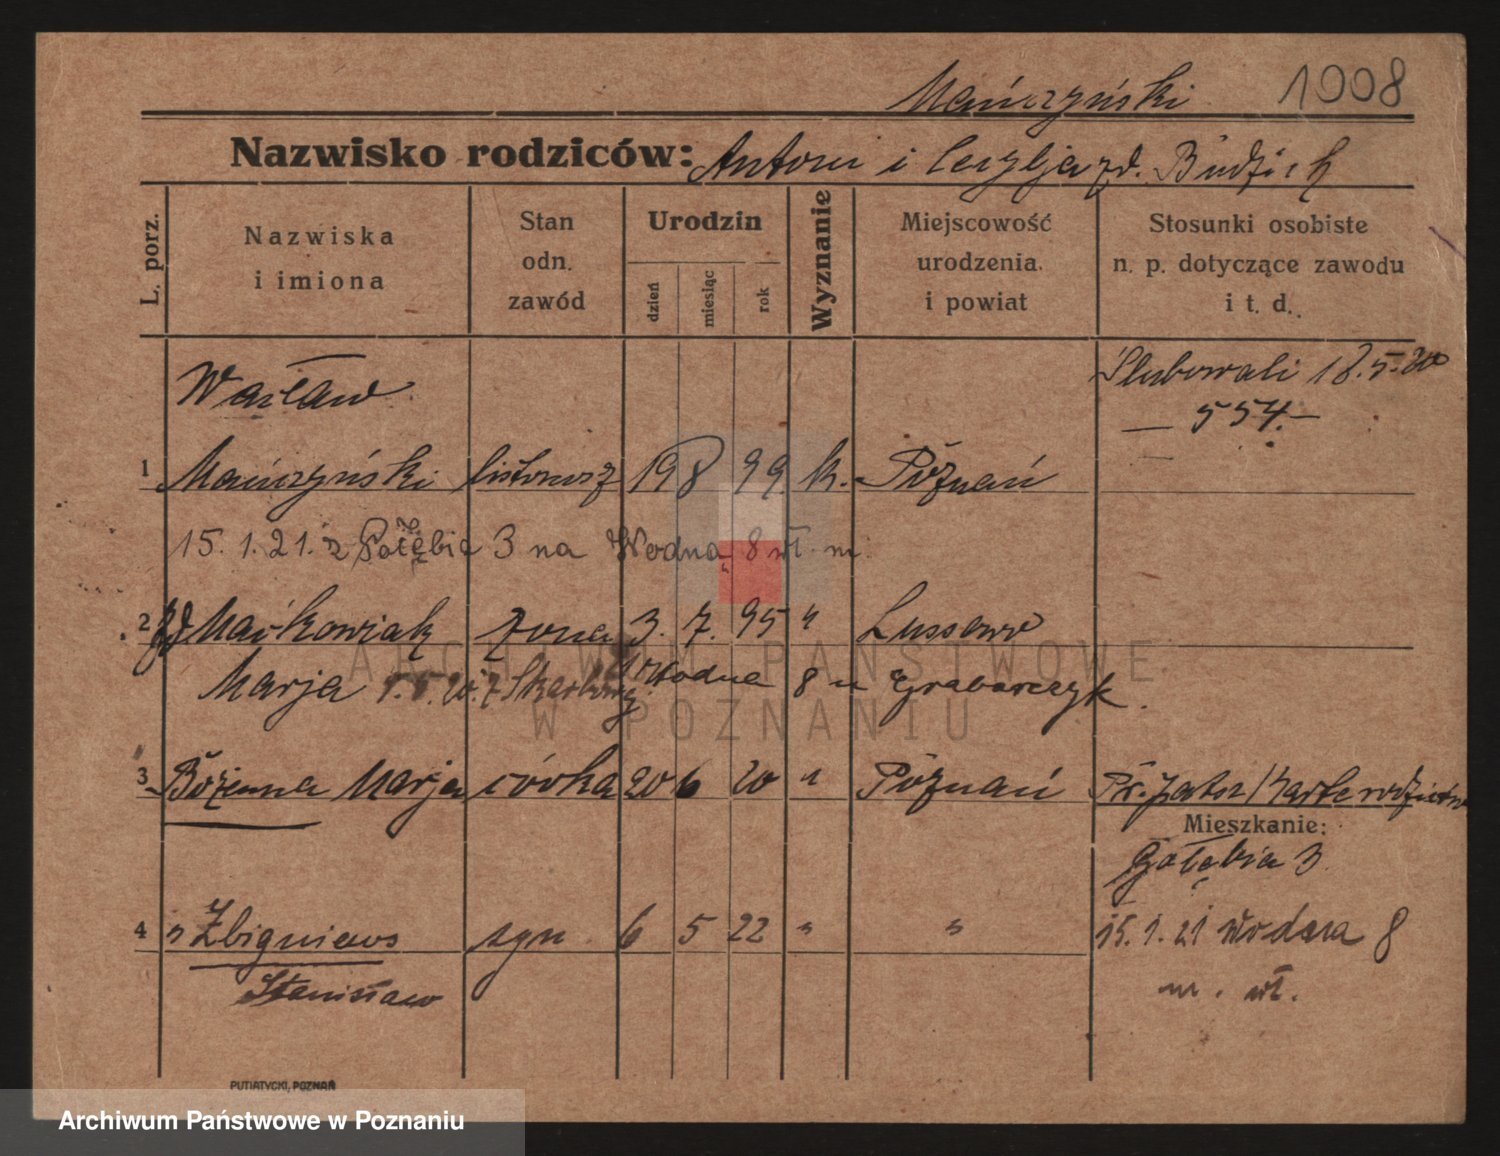 Mańczyński 1908
Nazwisko rodziców: Antoni i Cecylja zd. Budzich
L. porz.
Nazwiska i imiona
Stan odn. zawód
Urodzin
dzień miesiąc rok
Wyznanie
Miejscowość urodzenia i powiat
Stosunki osobiste n. p. dotyczące zawodu i t. d.
Wacław
Ślubowali 18.5.20
— 554 —
1 Mańczyński listonosz 19 8 99 k. Poznań
15.1.21. z Gołębia 3 na Wodną 8 wł. m
2 zd Maćkowiak żona 3. 7. 95 " Lussowo
Marja Wodna 8 u Grabarczyk.
3 Bożenna Marja córka 20 6 20 " Poznań
Mieszkanie:
Gołębia 3
4 " Zbigniew syn 6 5 22 " " 15.1.21 Wodna 8
Stanisław m. wł.
PUTIATYCKI, POZNAŃ
ARCHIWUM PAŃSTWOWE
W POZNANIU
Archiwum Państwowe w Poznaniu